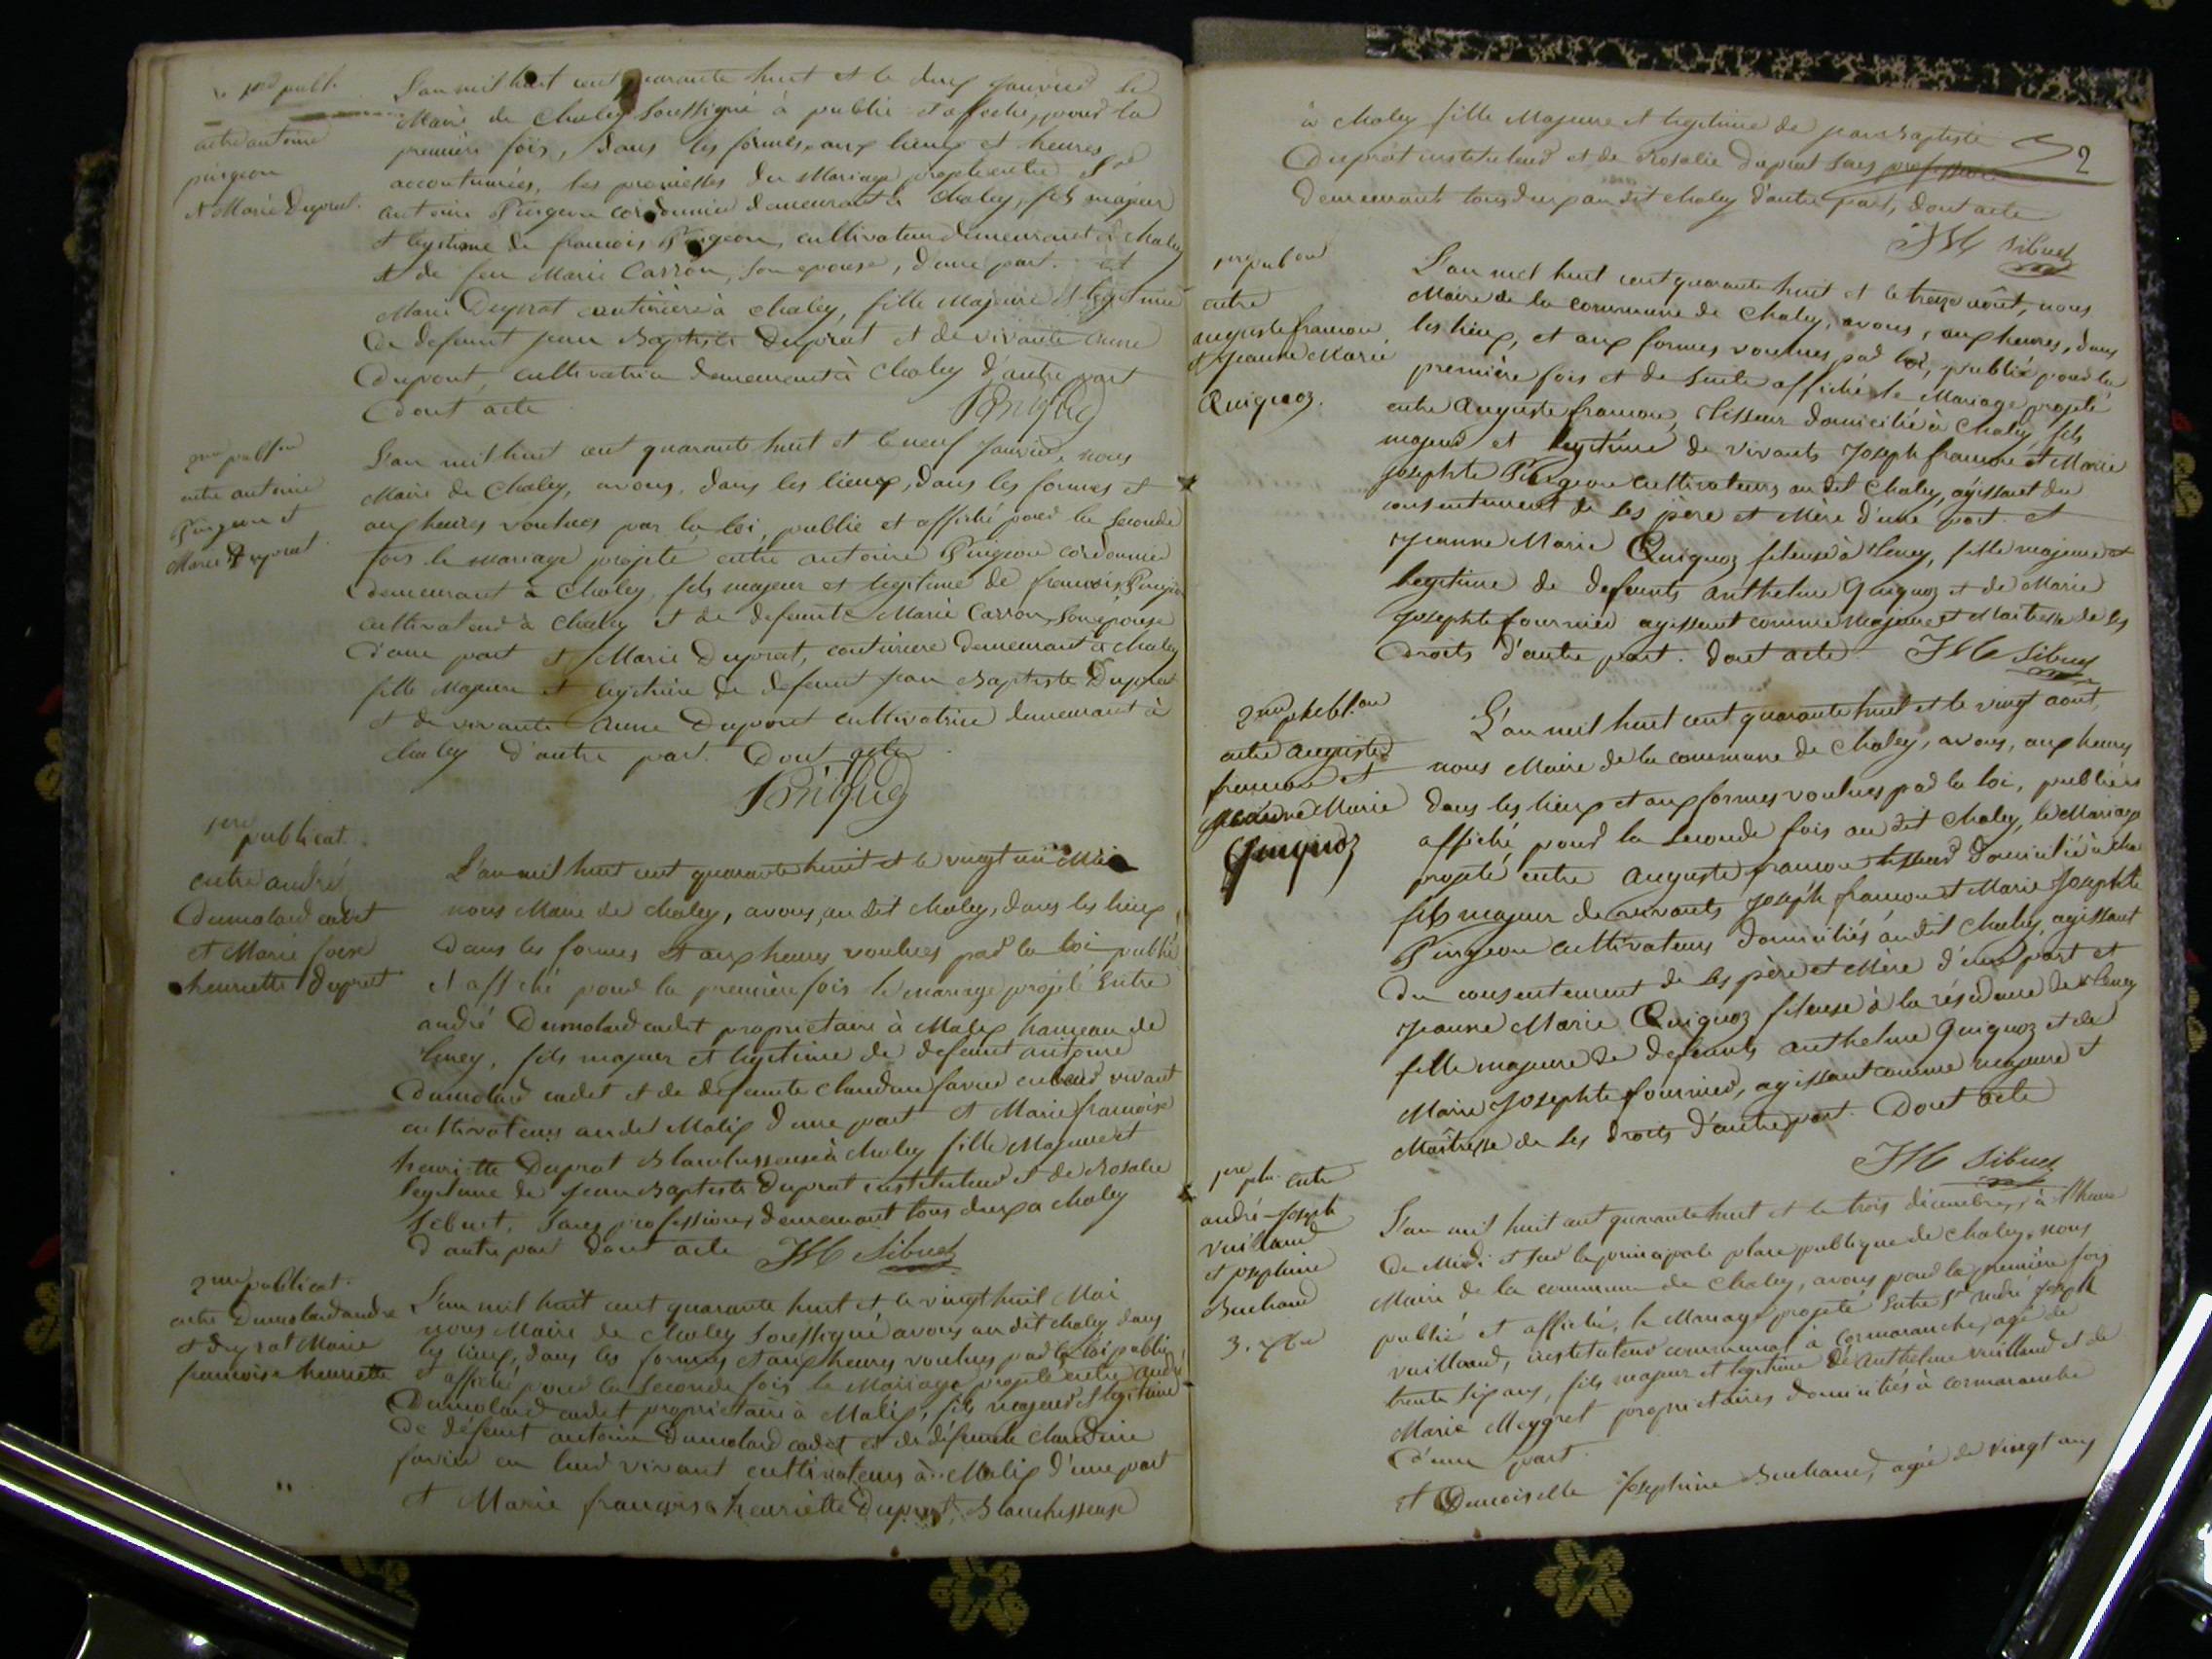 1re publ.
entre antoine
pingeon
et Marie Duprat.
L'an mil huit cent quarante huit et le deux janvier le
Maire de Chaley soussigné à publié et affiché, pour la
première fois, dans les formes, aux lieux et heures
accoutumées, les promesses du Mariage projeté entre Sr
antoine Pingeon cordonnier demeurant à Chaley, fils majeur
et légitime de francois Pingeon, cultivateur demeurant à Chaley
et de feu Marie Carron, son epouse, d'une part. et
Marie Duprat couturière à chaley, fille Majeure et légitime
De defunt jean Baptiste Duprat et de vivante anne
Dupont, cultivatrice demeurant à Chaley d'autre part
Dont acte
2me publion
entre antoine
Pingeon et
Marie Duprat.
L'an mil huit cent quarante huit et le neuf janvier, nous
Maire de Chaley, avons, dans les lieux, dans les formes et
aux heures voulues par la loi, publié et affiché pour la seconde
fois le mariage projeté entre antoine Pingeon cordonnier
demeurant à Chaley, fils majeur et legitime de francois Pingeon
cultivateur à Chaley et de defunte Marie Carron, son épouse
d'une part et Marie Duprat, couturiere demeurant à chaley
fille majeure et legitime de defunt jean Baptiste Duprat
et de vivante anne Dupont cultivatrice demeurant à
chaley d'autre part. Dont acte
1re publicat.
entre andré
Dumolard cadet
et Marie foise
henriette Duprat
L'an mil huit cent quarante huit et le vingt un Mai
nous Maire de chaley, avons, au dit chaley, dans les lieux,
Dans les formes et aux heures voulues par la loi publié
et affiché pour la première fois le mariage projeté entre
andré Dumolard cadet proprietaire à Malix hameau de
tenay, fils majeur et legitime de defunt antoine
Dumolard cadet et de defunte claudine favier en leur vivant
cultivateurs audit Malix d'une part et Marie francoise
henriette Duprat Blanchisseuse à chaley fille Majeure et
legitime de jean Baptiste Duprat instituteur et de Rosalie
Sebuet, sans profession, demeurant tous deux à chaley
d'autre part dont acte JM Sibuet
2me publicat.
entre Dumolard andré
et duprat Marie
francoise henriette
L'an mil huit cent quarante huit et le vingt huit Mai
nous Maire de Chaley soussigné avons au dit chaley dans
les lieux, dans les formes et aux heures voulues par la loi publié
et affiché pour la seconde fois le Mariage projeté entre andré
Dumolard cadet proprietaire à Malix, fils majeur et legitime
De défunt antoine Dumolard cadet et de défunte Claudine
favier en leur vivant cultivateurs à Malix d'une part
et Marie françoise henriette Duprat, Blanchisseuse
2
à chaley fille Majeure et legitime de jean Baptiste
Duprat instituteur et de Rosalie Duprat sans profession
Demeurant tous deux au dit chaley d'autre part, dont acte
JM Sibuet
1re publion
entre
auguste francon
et jeanne Marie
Quignoz.
L'an mil huit cent quarante huit et le treize août, nous
Maire de la commune de Chaley, avons, aux heures, dans
les lieux, et aux formes voulues par la loi, publié pour la
première fois et de suite affiché le Mariage projeté
entre Auguste francon, tisseur domicilié à Chaley, fils
majeur et legitime de vivants Joseph francon et Marie
josephte Pingeon cultivateurs au dit Chaley, agissant du
consentement de ses père et Mère d'une part. et
Jeanne Marie Quignoz fileuse à tenay, fille majeure et
legitime de defunts anthelme Quignoz et de Marie
josephte fournier agissant comme majeure et Maitresse de ses
Droits d'autre part. dont acte JM Sibuet
2me publion
entre auguste
francon et
Jeanne Marie
Quignoz
L'an mil huit cent quarante huit et le vingt aout,
nous Maire de la commune de Chaley, avons, aux heures
dans les lieux et aux formes voulues par la loi, publié et
affiché pour la seconde fois au dit Chaley, le Mariage
projeté entre auguste francon tisseur domicilié à cha
fils majeur de vivants joseph francon et Marie Josephte
Pingeon cultivateurs domiciliés au dit Chaley, agissant
du consentement de ses père et Mère d'une part et
Jeanne Marie Quignoz fileuse à la résidence de tenay
fille majeure de defunts anthelme Quignoz et de
Marie Josephte fournier, agissant comme majeure et
Maîtresse de ses droits d'autre part. Dont acte
JM Sibuet
1re pu. entre
andré-joseph
vuilland
et josephine
Buchand
3. Xbre
L'an mil huit cent quarante huit et le trois décembre, à l'heure
De Midi et sur la principale place publique de Chaley, nous
Maire de la commune de Chaley, avons pour la première fois
publié et affiché, le Mariage projeté entre Sr andré joseph
vuilland, instituteur communal à Cormaranche, agé de
trente six ans, fils majeur et legitime de anthelme vuilland et de
Marie Meygret proprietaires domiciliés à cormaranche
D'une part.
et Demoiselle josephine Buchand, agée de vingt ans